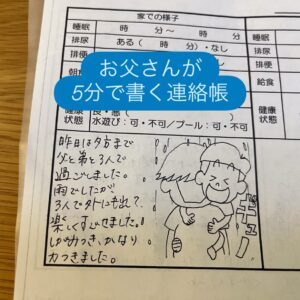 家での様子
睡眠 時 分〜 時 分
排尿 ある( 時 分)・なし
排便
健康状態
水遊び:可・不可/プール:可・不可
睡眠
排尿
排便
給食
健康状態
お父さんが
5分で書く連絡帳
昨日は夕方まで
父と弟と3人で
過ごしました。
雨でしたが
3人で外にも出て、
楽しくすごせました。!
しがみつき、かなり
力つきました。
ギュー